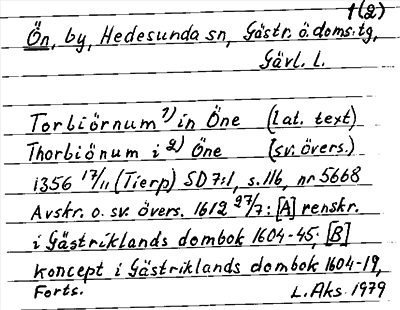 1(2)
Ön, by, Hedesunda sn, Gästr. ö. doms.tg,
Gävl. l.
Torbiörnum 1) in Öne (lat. text)
Thorbiönum i 2) Öne (sv. övers.)
1356 17/11 (Tierp) SD 7:1, s. 116, nr 5668
Avskr. o. sv. övers. 1612 27/7: [A] renskr.
i Gästriklands dombok 1604-45; [B]
koncept i Gästriklands dombok 1604-19,
Forts. L. Aks. 1979